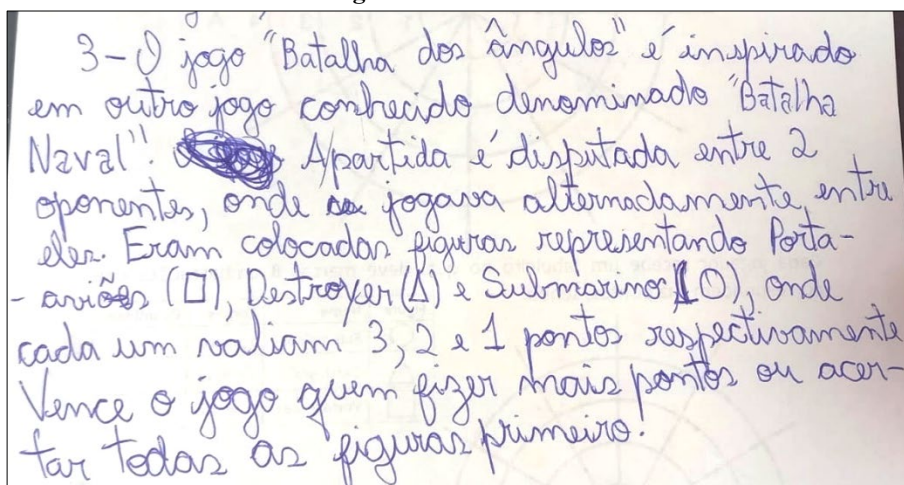 3 - O jogo "Batalha dos ângulos" é inspirado
em outro jogo conhecido denominado "Batalha
Naval". A partida é disputada entre 2
oponentes, onde jogava alternadamente, entre
eles. Eram colocadas figuras representando Porta-
- aviões (□), Destroyer (△) e Submarino (O), onde
cada um valiam 3, 2 e 1 pontos respectivamente
Vence o jogo quem fizer mais pontos ou acer-
tar todas as figuras primeiro.